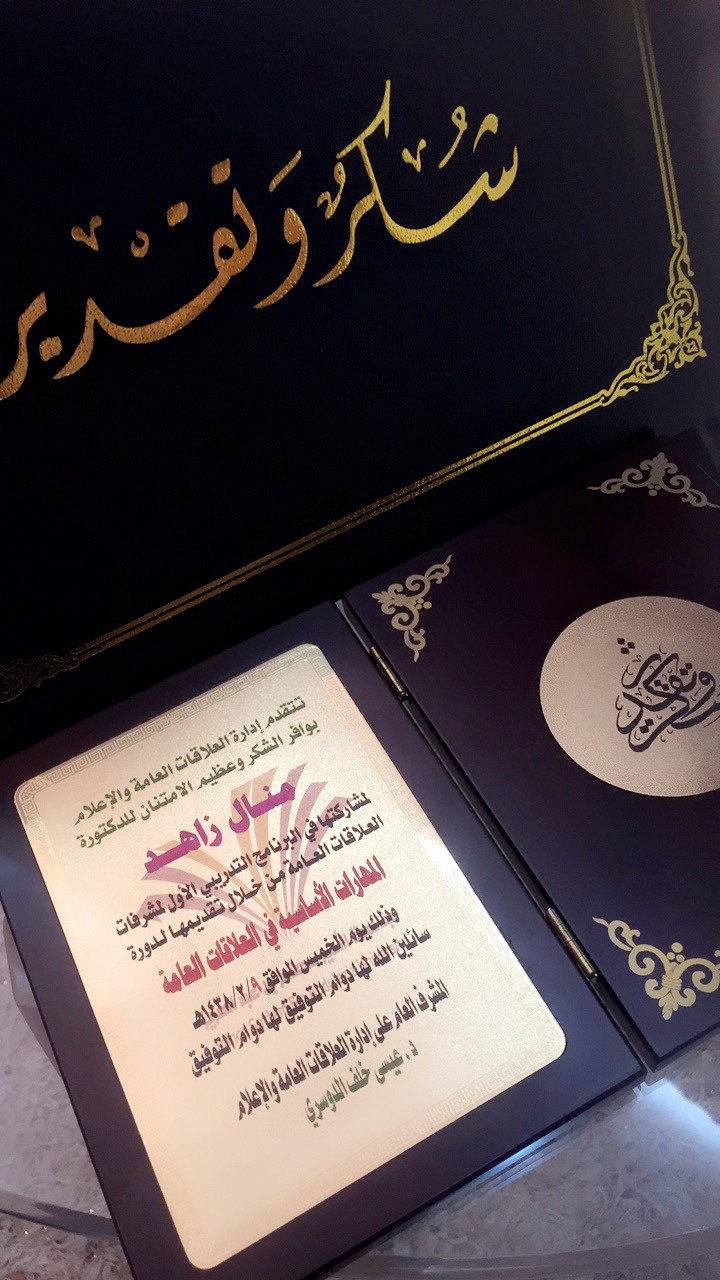 شُكر وَتقدير
تتقدم إدارة العلاقات العامة والإعلام
بوافر الشكر وعظيم الامتنان للدكتورة
منال زاهد
لمشاركتها في البرنامج التدريبي الأول لمشرفات
العلاقات العامة من خلال تقديمها لدورة
المهارات الأساسية في العلاقات العامة
وذلك يوم الخميس الموافق ١٤٣٨/٧/٩هـ
سائلين الله لها دوام التوفيق لها دوام التوفيق
المشرف العام على إدارة العلاقات العامة والإعلام
د. عيسى خلف الدوسري
وتقدير